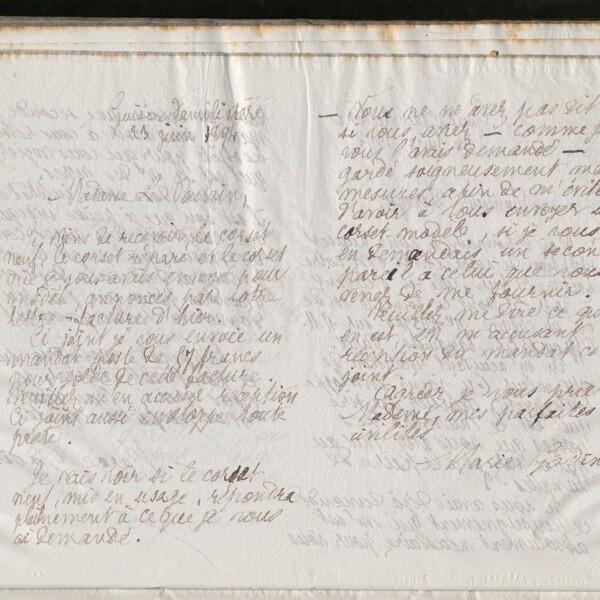 Guise Familistère
23 juin 1894
Madame
Je viens de recevoir le corset
neuf, le corset réparé et le corset
que je vous avais envoyé pour
modèle, annoncés par votre
lettre-facture d'hier.
Ci joint je vous envoie un
mandat poste de 37 francs
pour solde de cette facture
Veuillez m'en accuser réception
Ci joint aussi enveloppe toute
prête.
Je vais voir si le corset
neuf, mis en usage, répondra
pleinement à ce que je vous
ai demandé.
— Vous ne m'avez pas dit
si vous avez — comme je
vous l'avais demandé —
gardé soigneusement mes
mesures afin de m'éviter
d'avoir à vous envoyer
corset modèle, si je vous
en demandais un second
pareil à celui que vous
venez de me fournir.
Veuillez me dire ce qui
en est en m'accusant
réception du mandat ci
joint.
Agréez je vous prie
Madame, mes parfaites
civilités
Marie Godin